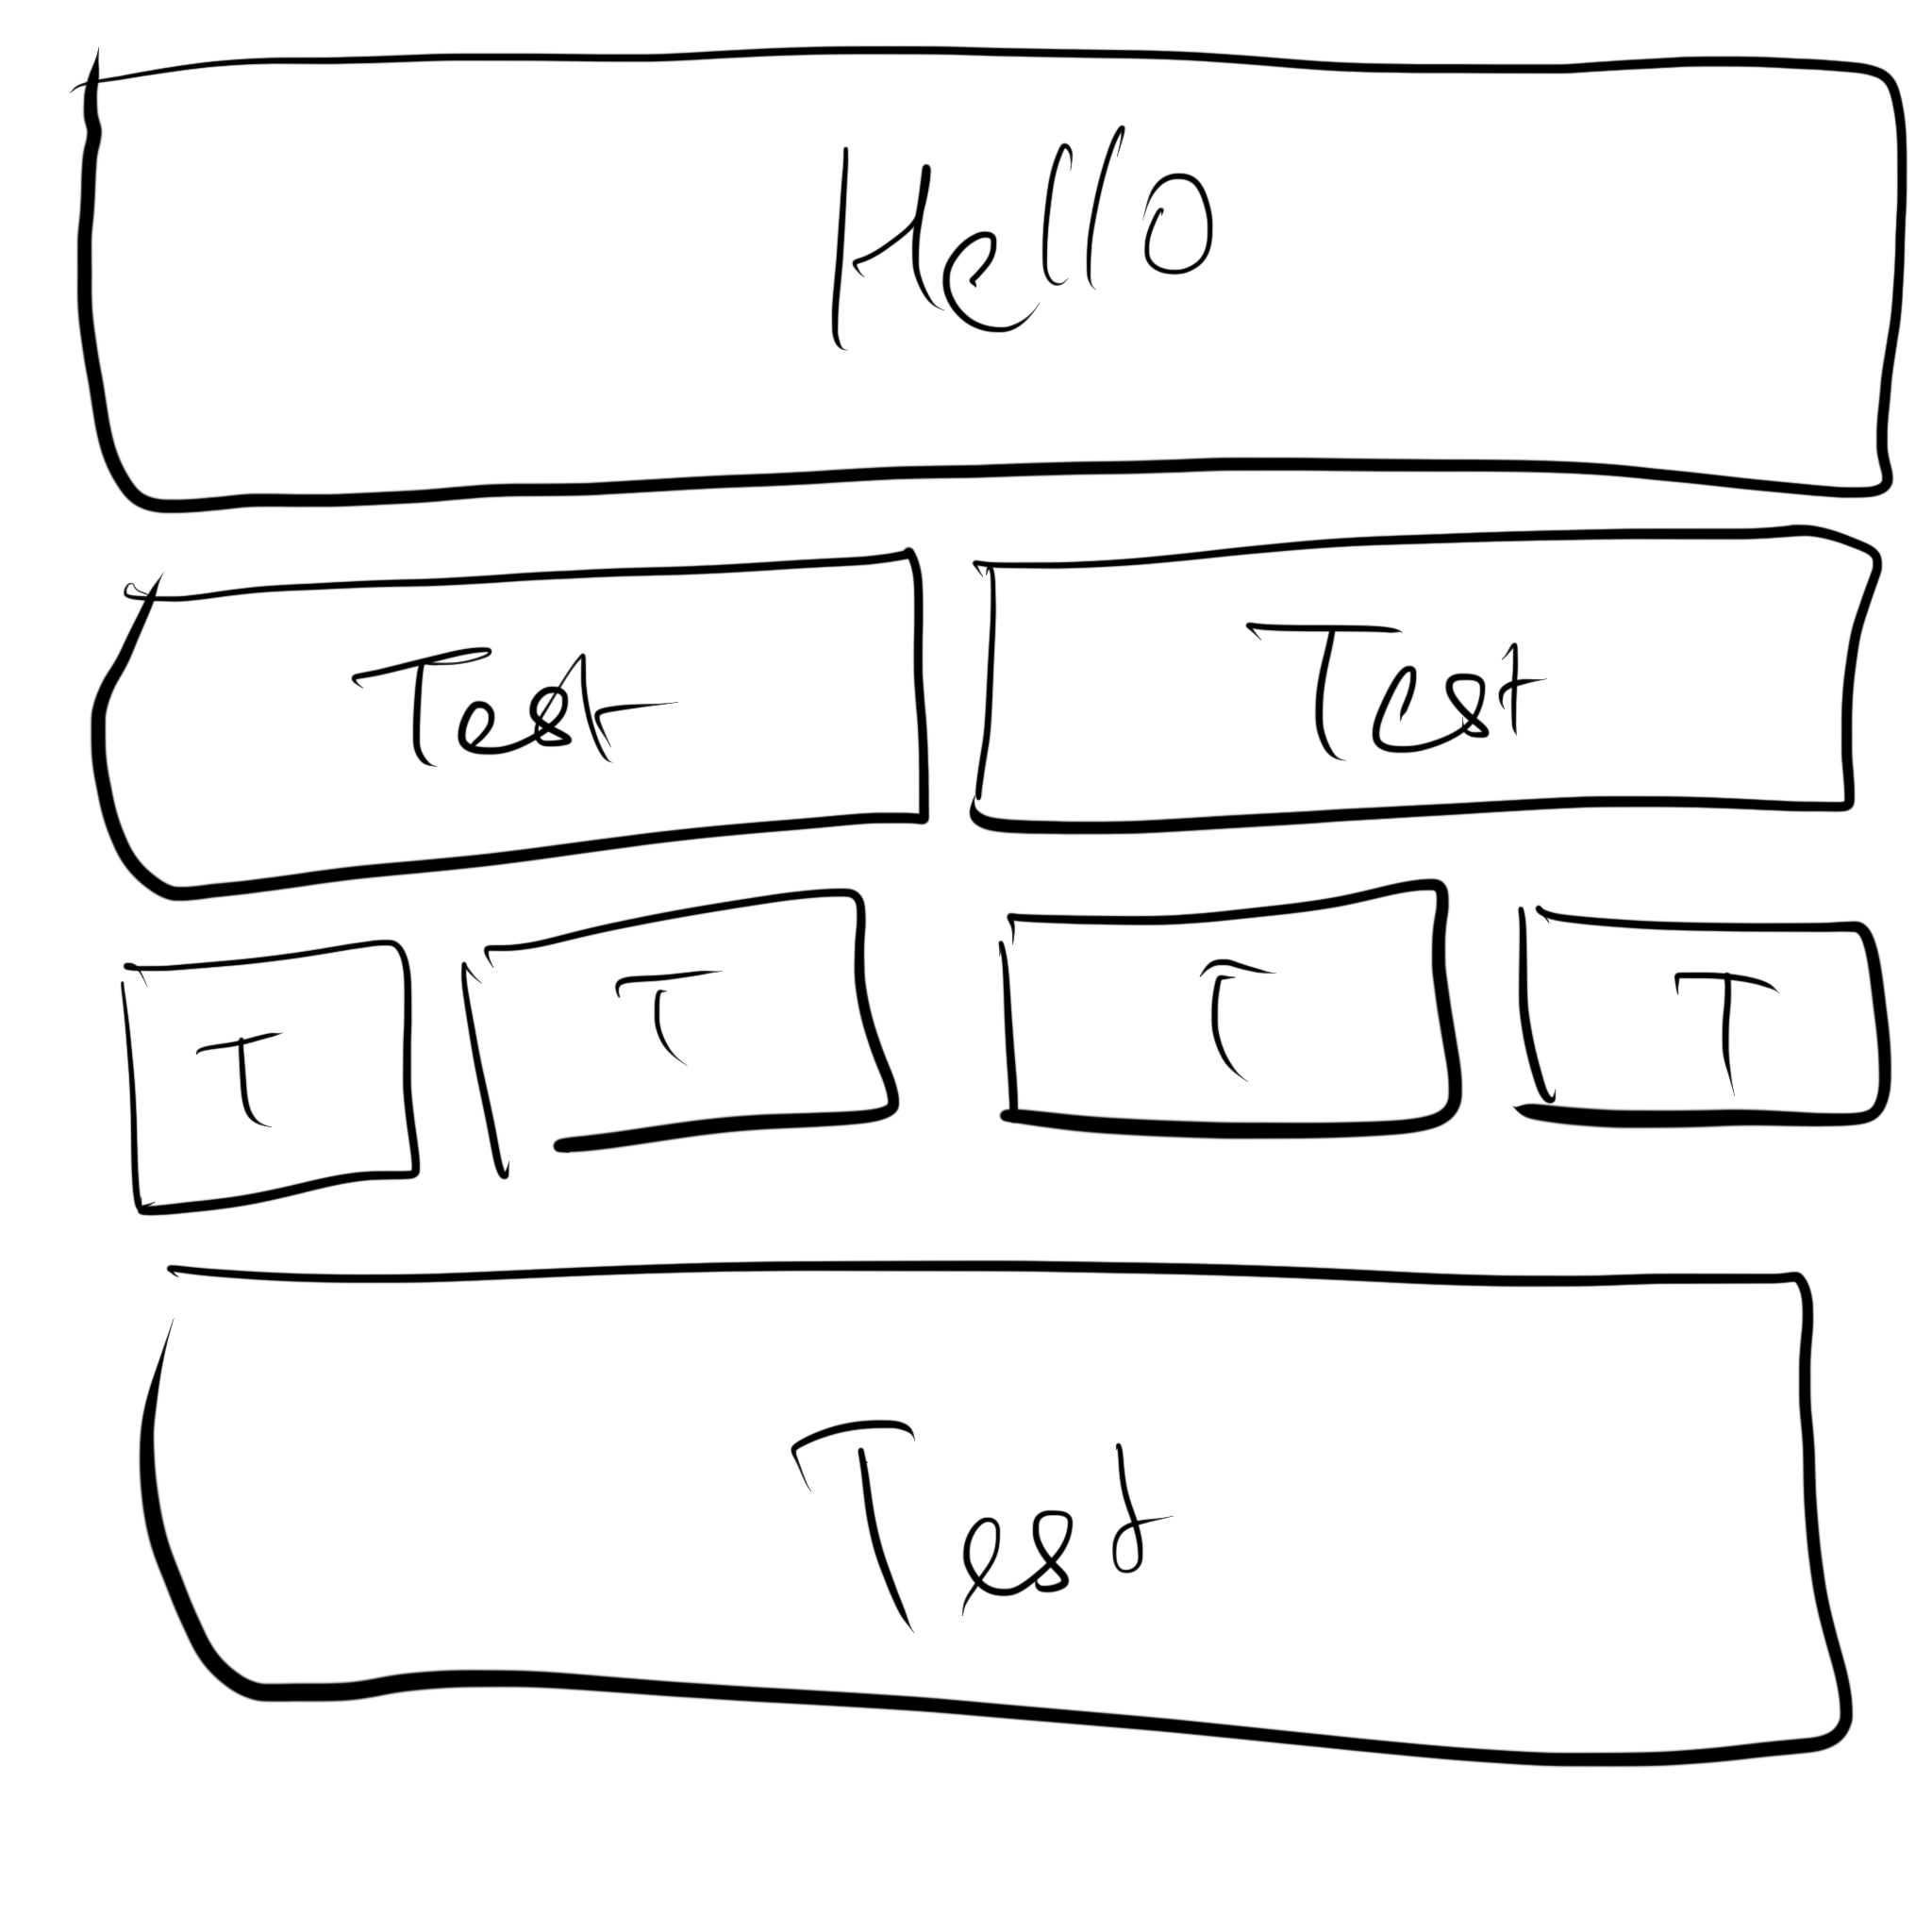 Hello
Test Test
T T T T
Test